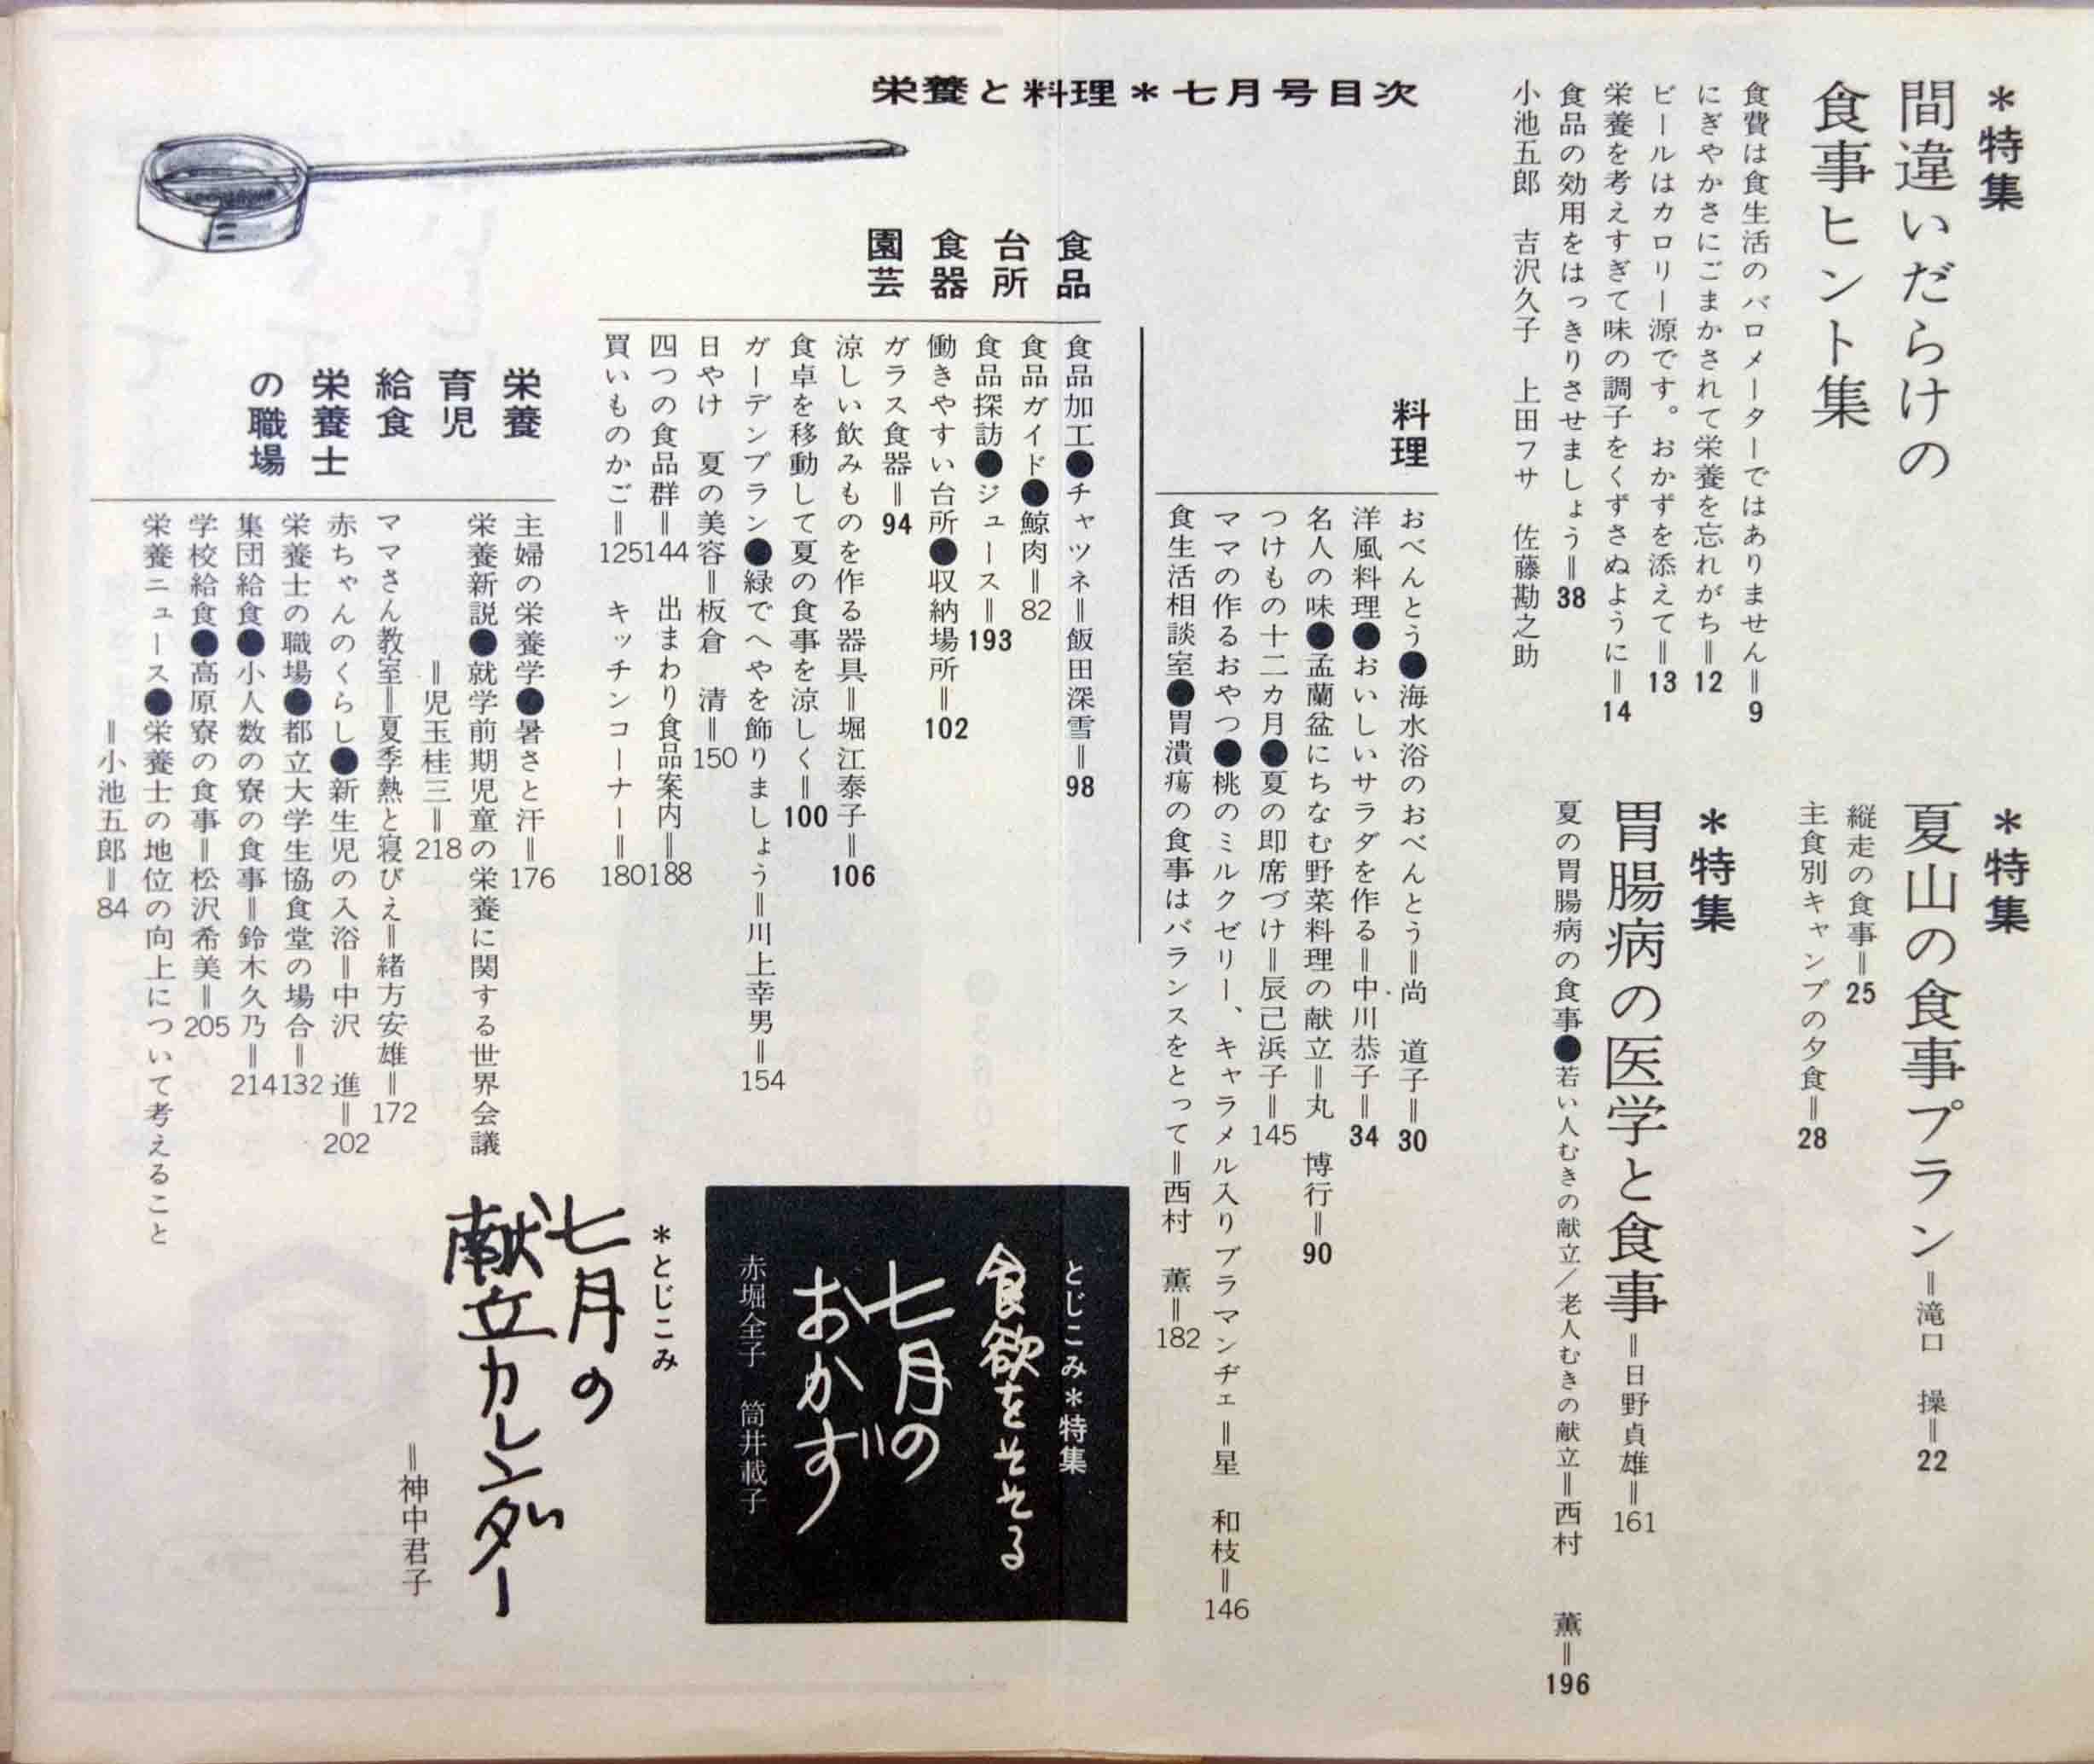 栄養と料理＊七月号目次
＊特集
間違いだらけの
食事ヒント集
食費は食生活のバロメーターではありません＝9
にぎやかさにごまかされて栄養を忘れがち＝12
ビールはカロリー源です。おかずを添えて＝13
栄養を考えすぎて味の調子をくずさぬように＝14
食品の効用をはっきりさせましょう＝38
小池五郎　吉沢久子　上田フサ　佐藤勘之助
＊特集
夏山の食事プラン＝滝口　操＝22
縦走の食事＝25
主食別キャンプの夕食＝28
＊特集
胃腸病の医学と食事＝日野貞雄＝161
夏の胃腸病の食事●若い人むきの献立／老人むきの献立＝西村　薫＝196
料理
おべんとう●海水浴のおべんとう＝尚　道子＝30
洋風料理●おいしいサラダを作る＝中川恭子＝34
名人の味●孟蘭盆にちなむ野菜料理の献立＝丸　博行＝90
つけもの十二カ月●夏の即席づけ＝辰己浜子＝145
ママの作るおやつ●桃のミルクゼリー、キャラメル入りブラマンヂェ＝星　和枝＝146
食生活相談室●胃潰瘍の食事はバランスをとって＝西村　薫＝182
食品
台所
食器
園芸
食品加工●チャツネ＝飯田深雪＝98
食品ガイド●鯨肉＝82
食品探訪●ジュース＝193
働きやすい台所●収納場所＝102
ガラス食器＝94
涼しい飲みものを作る器具＝堀江泰子＝106
食卓を移動して夏の食事を涼しく＝100
ガーデンプラン●緑でへやを飾りましょう＝川上幸男＝154
日やけ　夏の美容＝板倉　清＝150
四つの食品群＝144　出まわり食品案内＝188
買いものかご＝125　キッチンコーナー＝180
栄養
育児
給食
栄養士
の職場
主婦の栄養学●暑さと汗＝176
栄養新説●就学前期児童の栄養に関する世界会議
＝児玉桂三＝218
ママさん教室＝夏季熱と寝びえ＝緒方安雄＝172
赤ちゃんのくらし●新生児の入浴＝中沢　進＝202
栄養士の職場●都立大学生協食堂の場合＝132
集団給食●小人数の寮の食事＝鈴木久乃＝214
学校給食●高原寮の食事＝松沢希美＝205
栄養ニュース●栄養士の地位の向上について考えること
＝小池五郎＝84
とじこみ＊特集
食欲をそそる
七月の
おかず
赤堀全子　筒井載子
＊とじこみ
七月の
献立カレンダー
＝神中君子